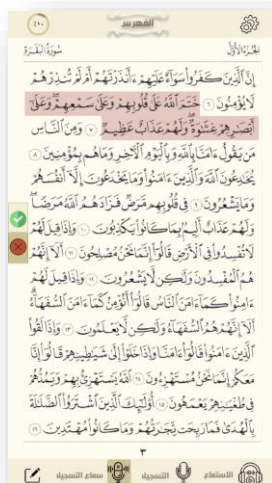 ٤١٠
الفهرس
الجزء الأول
سورة البقرة
إِنَّ ٱلَّذِينَ كَفَرُوا۟ سَوَآءٌ عَلَيْهِمْ ءَأَنذَرْتَهُمْ أَمْ لَمْ تُنذِرْهُمْ
لَا يُؤْمِنُونَ ٦ خَتَمَ ٱللَّهُ عَلَىٰ قُلُوبِهِمْ وَعَلَىٰ سَمْعِهِمْ ۖ وَعَلَىٰٓ
أَبْصَٰرِهِمْ غِشَٰوَةٌ ۖ وَلَهُمْ عَذَابٌ عَظِيمٌ ٧ وَمِنَ ٱلنَّاسِ
مَن يَقُولُ ءَامَنَّا بِٱللَّهِ وَبِٱلْيَوْمِ ٱلْـَٔاخِرِ وَمَا هُم بِمُؤْمِنِينَ ٨
يُخَٰدِعُونَ ٱللَّهَ وَٱلَّذِينَ ءَامَنُوا۟ وَمَا يَخْدَعُونَ إِلَّآ أَنفُسَهُمْ
وَمَا يَشْعُرُونَ ٩ فِى قُلُوبِهِم مَّرَضٌ فَزَادَهُمُ ٱللَّهُ مَرَضًا ۖ
وَلَهُمْ عَذَابٌ أَلِيمٌۢ بِمَا كَانُوا۟ يَكْذِبُونَ ١٠ وَإِذَا قِيلَ لَهُمْ
لَا تُفْسِدُوا۟ فِى ٱلْأَرْضِ قَالُوٓا۟ إِنَّمَا نَحْنُ مُصْلِحُونَ ١١ أَلَآ إِنَّهُمْ
هُمُ ٱلْمُفْسِدُونَ وَلَٰكِن لَّا يَشْعُرُونَ ١٢ وَإِذَا قِيلَ لَهُمْ
ءَامِنُوا۟ كَمَآ ءَامَنَ ٱلنَّاسُ قَالُوٓا۟ أَنُؤْمِنُ كَمَآ ءَامَنَ ٱلسُّفَهَآءُ ۗ
أَلَآ إِنَّهُمْ هُمُ ٱلسُّفَهَآءُ وَلَٰكِن لَّا يَعْلَمُونَ ١٣ وَإِذَا لَقُوا۟
ٱلَّذِينَ ءَامَنُوا۟ قَالُوٓا۟ ءَامَنَّا وَإِذَا خَلَوْا۟ إِلَىٰ شَيَٰطِينِهِمْ قَالُوٓا۟ إِنَّا
مَعَكُمْ إِنَّمَا نَحْنُ مُسْتَهْزِءُونَ ١٤ ٱللَّهُ يَسْتَهْزِئُ بِهِمْ وَيَمُدُّهُمْ
فِى طُغْيَٰنِهِمْ يَعْمَهُونَ ١٥ أُو۟لَٰٓئِكَ ٱلَّذِينَ ٱشْتَرَوُا۟ ٱلضَّلَٰلَةَ
بِٱلْهُدَىٰ فَمَا رَبِحَت تِّجَٰرَتُهُمْ وَمَا كَانُوا۟ مُهْتَدِينَ ١٦
٣
الاستماع
التسجيل
سماع التسجيل